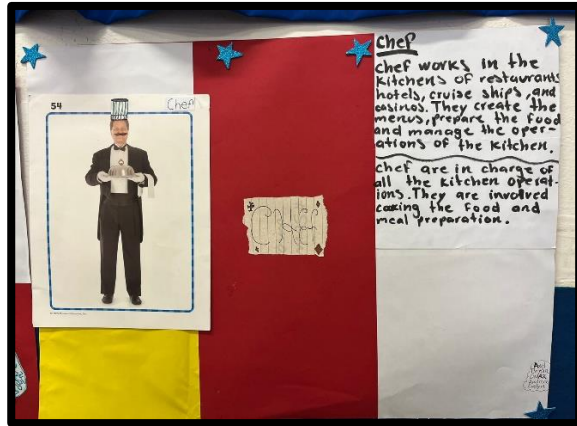 54
Chef
Chef
Chef
Chef works in the
kitchens of restaurants
hotels, cruise ships, and
casinos. They create the
menus, prepare the food
and manage the oper-
ations of the kitchen.
Chef are in charge of
all the kitchen operat-
ions. They are involved
cooking the food and
meal preparation.